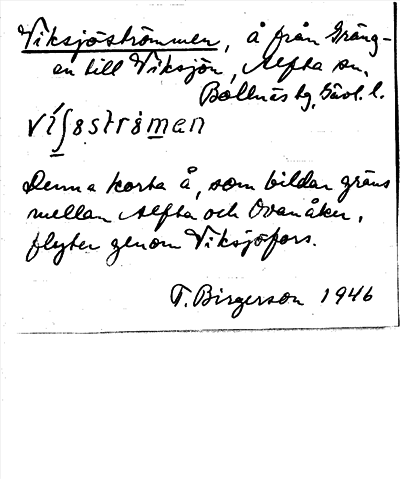 Viksjöströmmen, å från Gräng-
en till Viksjön, Alfta sn,
Bollnäs tg, Gävl. l.
ví∫əström̲an
Denna korta å, som bildar gräns
mellan Alfta och Ovanåker,
flyter genom Viksjöfors.
T. Birgerson 1946